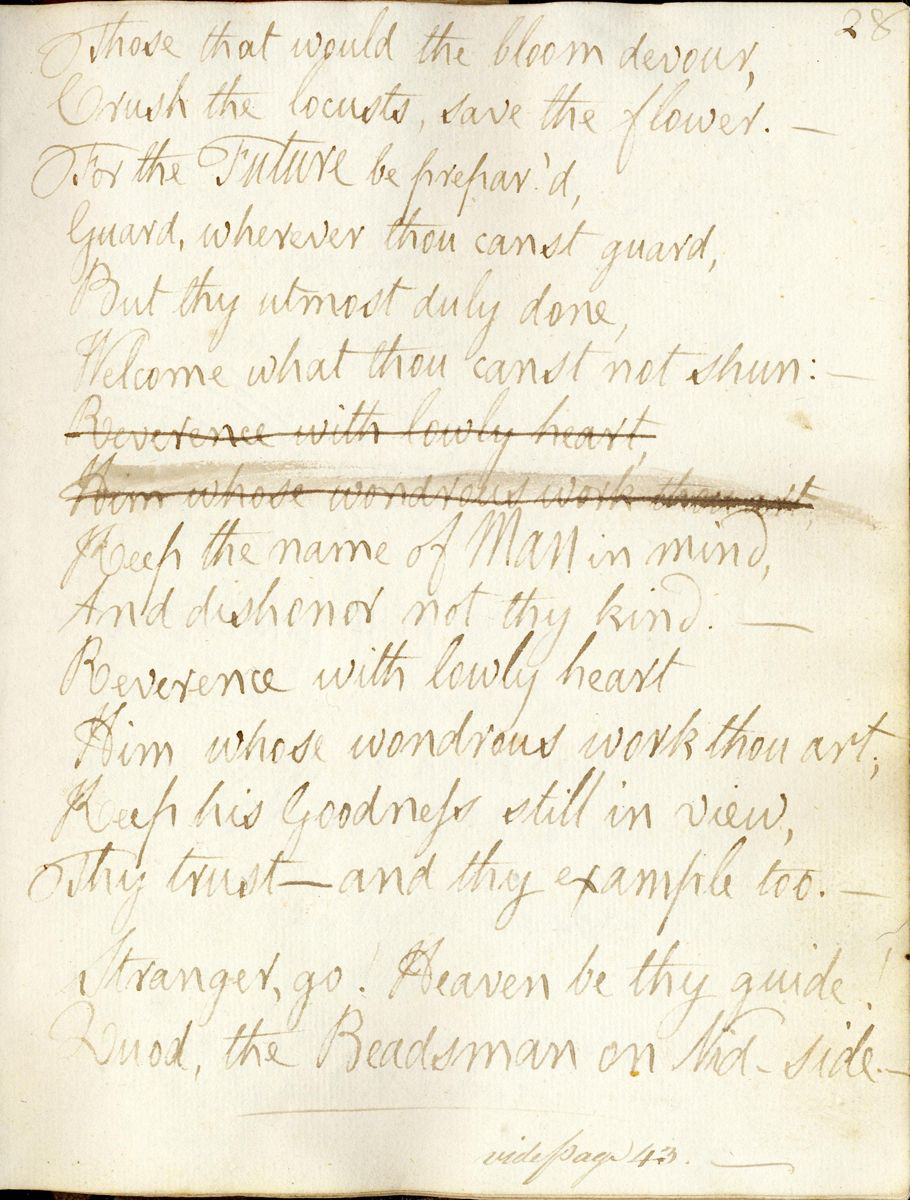 28
Those that would the bloom devour,
Crush the locusts, save the flower. —
For the Future be prepar'd,
Guard, wherever thou canst guard,
But thy utmost duly done,
Welcome what thou canst not shun: —
Reverence with lowly heart,
Him whose wondrous work thou art,
Keep the name of Man in mind,
And dishonor not thy kind. —
Reverence with lowly heart
Him whose wondrous work thou art;
Keep his Goodneſs still in view,
Thy trust — and thy example too. —
Stranger, go! Heaven be thy guide!
Quod, the Beadsman on Nid-side. —
vide page 43. —